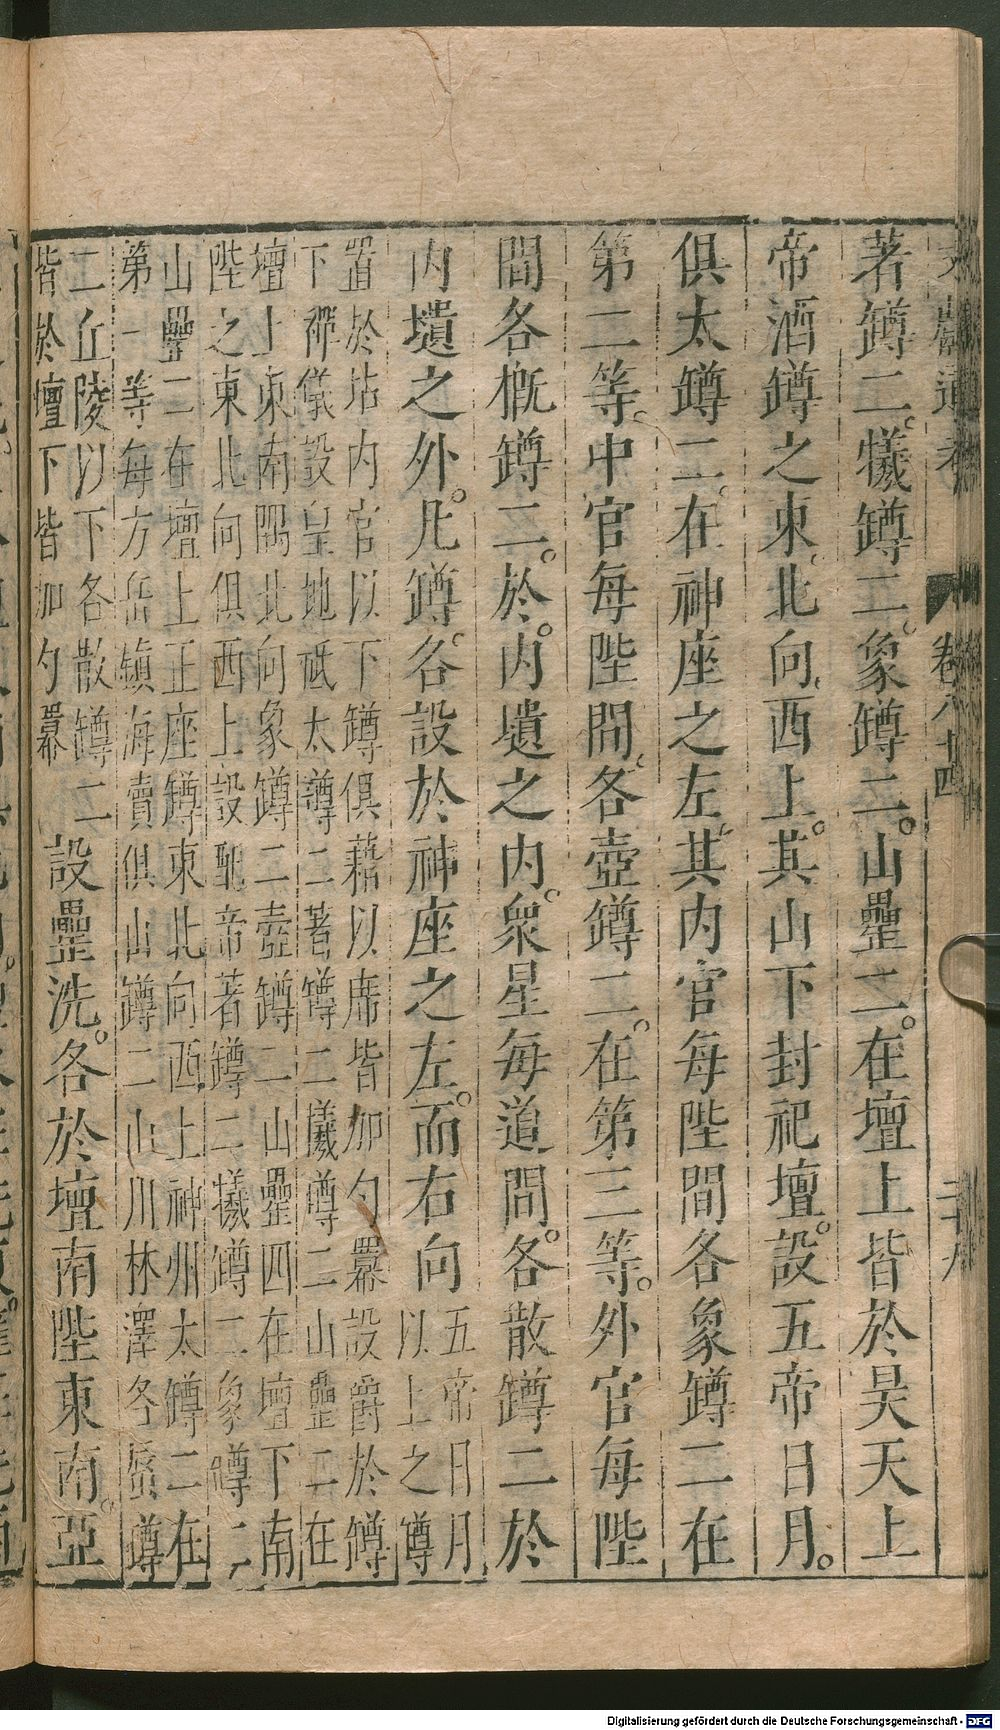 文獻通考 卷八十四 二十八
著罇二。犧罇二。象罇二。山罍二。在壇上皆於昊天上
帝酒罇之東。北向。西上。其山下封祀壇。設五帝日月。
俱太罇二。在神座之左。其内官每陛間各象罇二在
第二等。中官每陛間。各壺罇二。在第三等。外官每陛
間各概罇二。於内壝之内。衆星每道間。各散罇二於
内壝之外。凡罇。各設於神座之左。而右向
五帝日月
以上之罇
置於坫内官以下罇俱藉以席皆加勺羃設爵於罇
下禪儀設皇地祇太罇二著罇二犧罇二山罍二在
壇上東南隅北向象罇二壺罇二山罍四在壇下南
陛之東北向俱西上設配帝著罇二犧罇二象罇二
山罍二在壇上正座罇東北向西上神州太罇二在
第一等每方岳鎮海瀆俱山罇二山川林澤各蜃罇
二丘陵以下各散罇二
皆於壇下皆加勺羃
設罍洗。各於壇南陛東南。亞
Digitalisierung gefördert durch die Deutsche Forschungsgemeinschaft - DFG